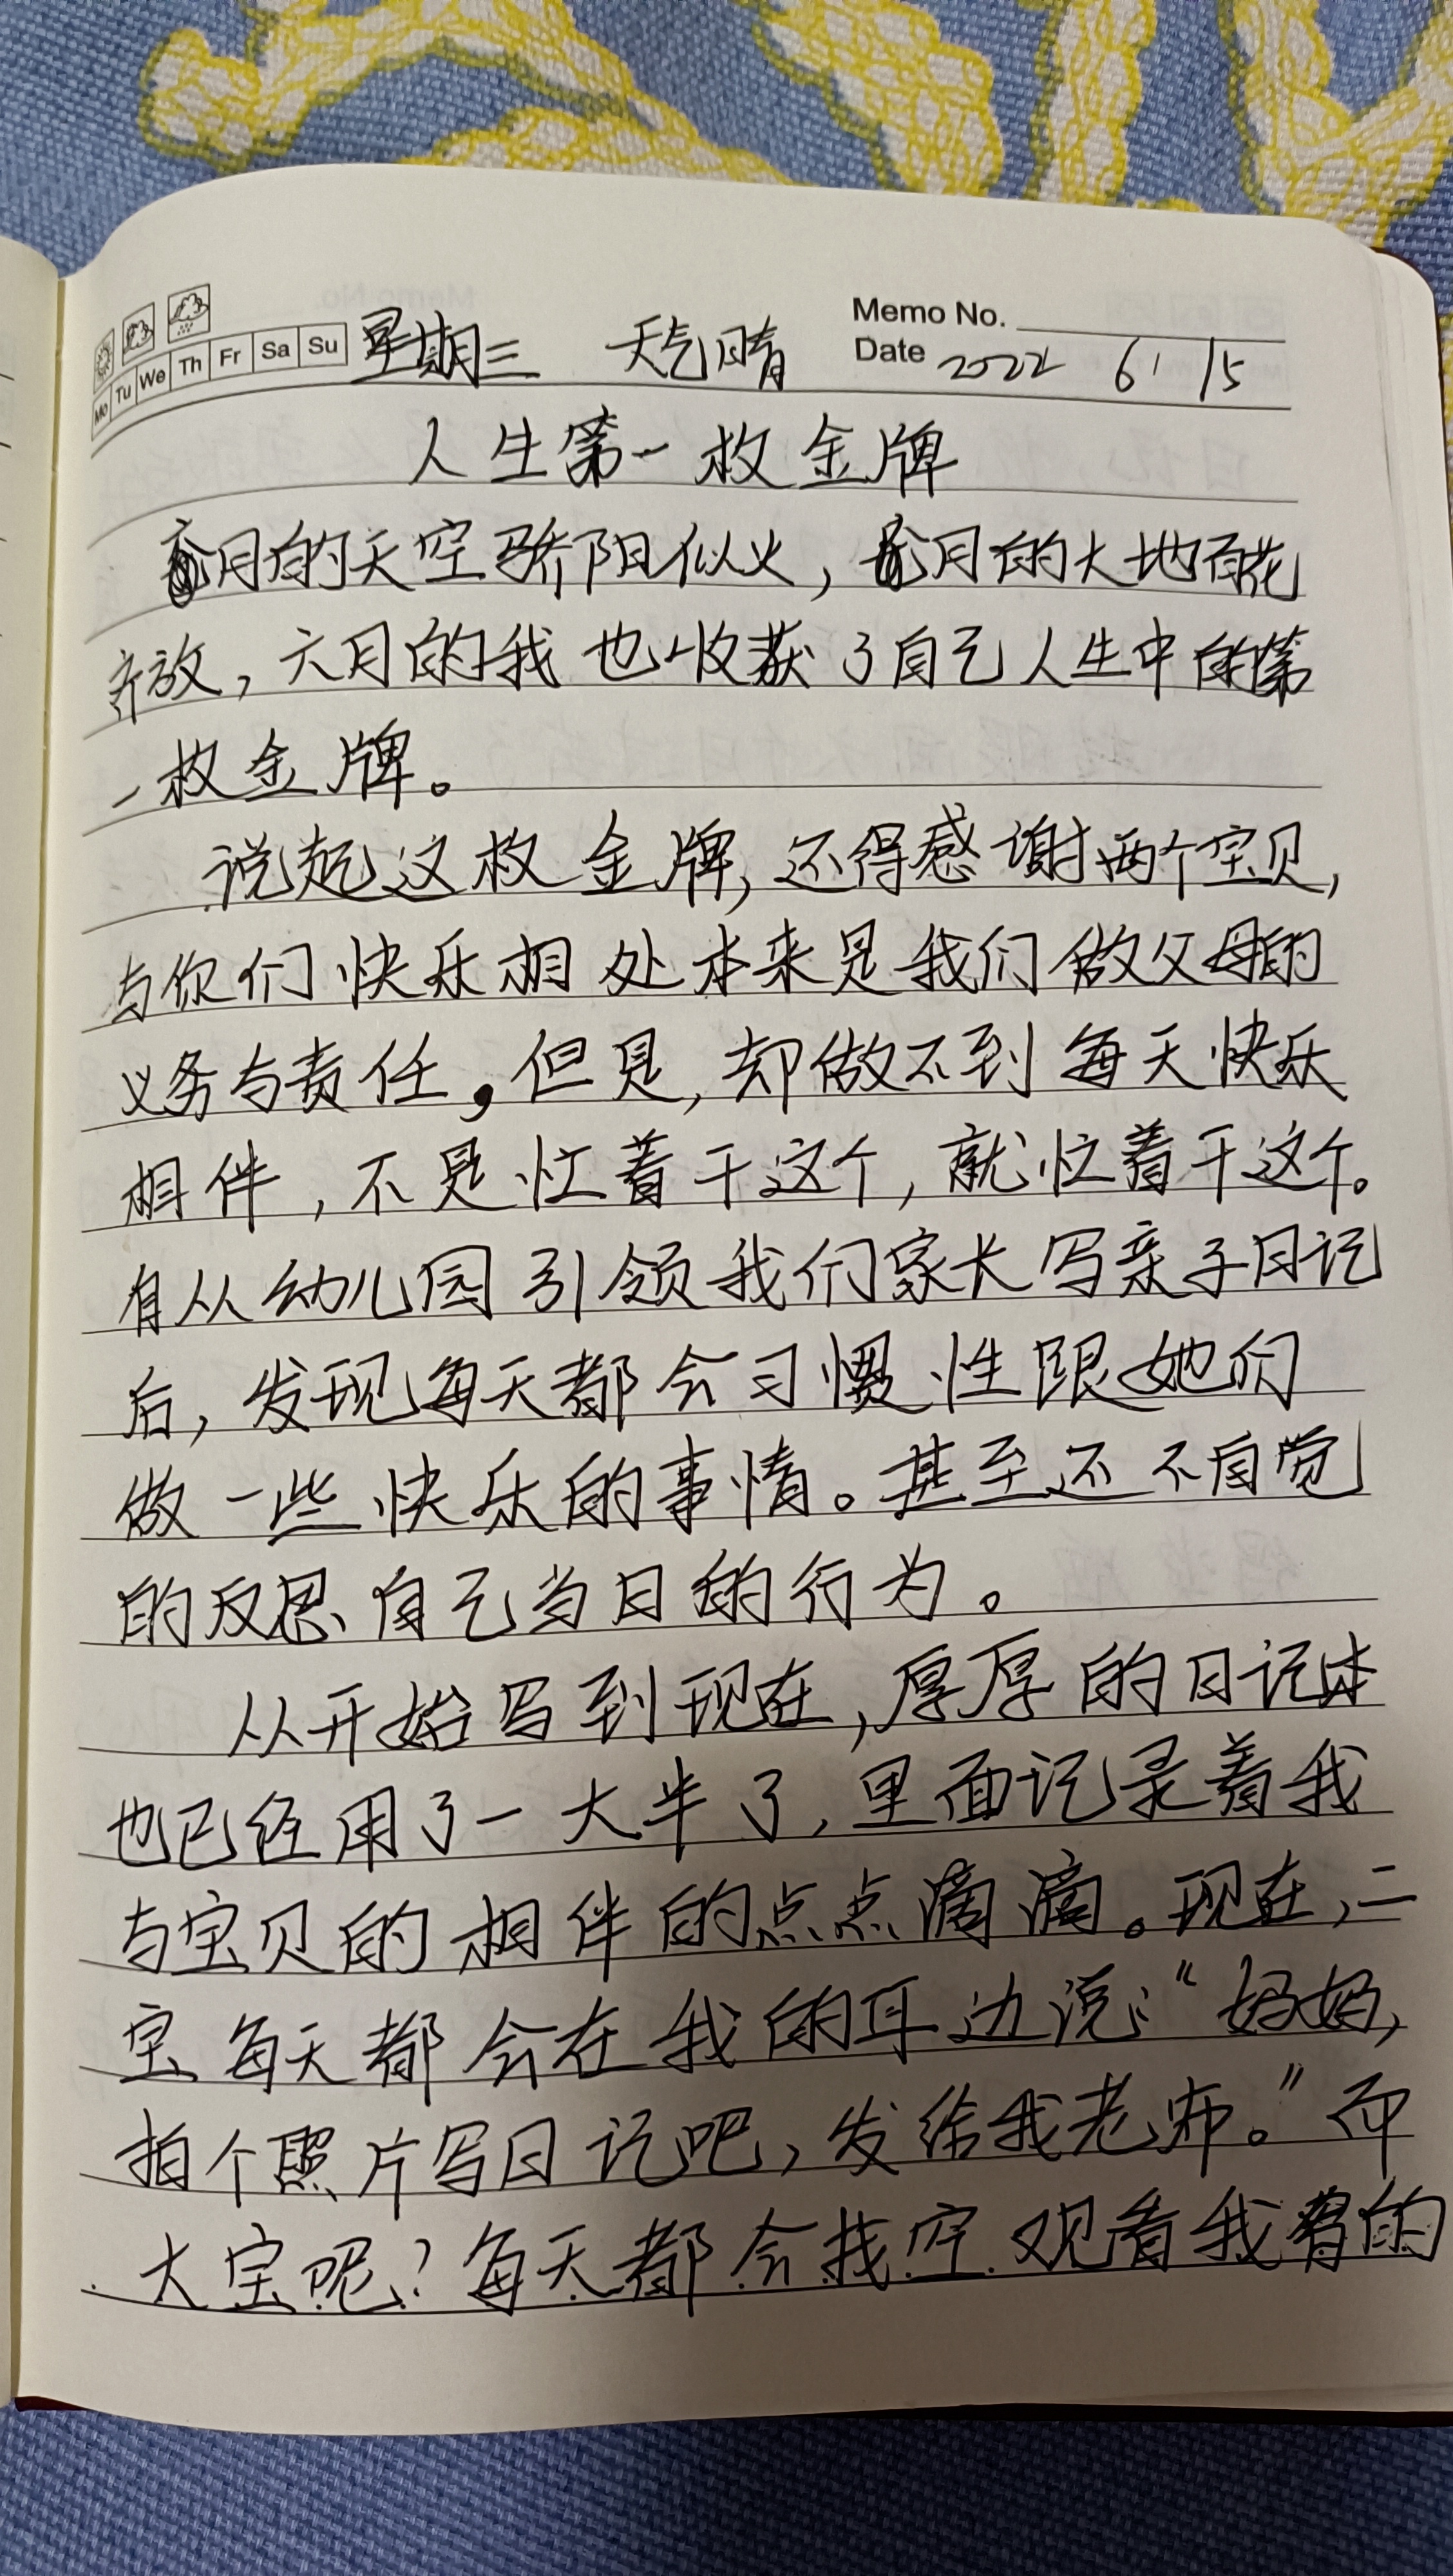 Memo No.
Mo Tu We Th Fr Sa Su 星期三 天气晴 Date 2022 6 15
人生第一枚金牌
六月的天空骄阳似火，六月的大地百花
齐放，六月的我也收获了自己人生中的第
一枚金牌。
说起这枚金牌，还得感谢两个宝贝，
与你们快乐相处本来是我们做父母的
义务与责任，但是，却做不到每天快乐
相伴，不是忙着干这个，就忙着干这个。
自从幼儿园引领我们家长写亲子日记
后，发现每天都会习惯性跟她们
做一些快乐的事情。甚至还不自觉
的反思自己当日的行为。
从开始写到现在，厚厚的日记本
也已经用了一大半了，里面记录着我
与宝贝的相伴的点点滴滴。现在，二
宝每天都会在我的耳边说：“妈妈，
拍个照片写日记吧，发给我老师。”而
大宝呢？每天都会找空观看我写的